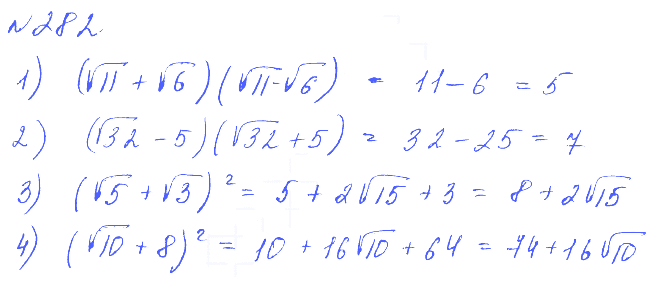 №282.
1) (√11 + √6)(√11-√6) = 11-6 = 5
2) (√32 - 5)(√32 + 5) = 32 - 25 = 7
3) (√5 + √3)² = 5 + 2√15 + 3 = 8 + 2√15
4) (√10 + 8)² = 10 + 16√10 + 64 = 74 + 16√10